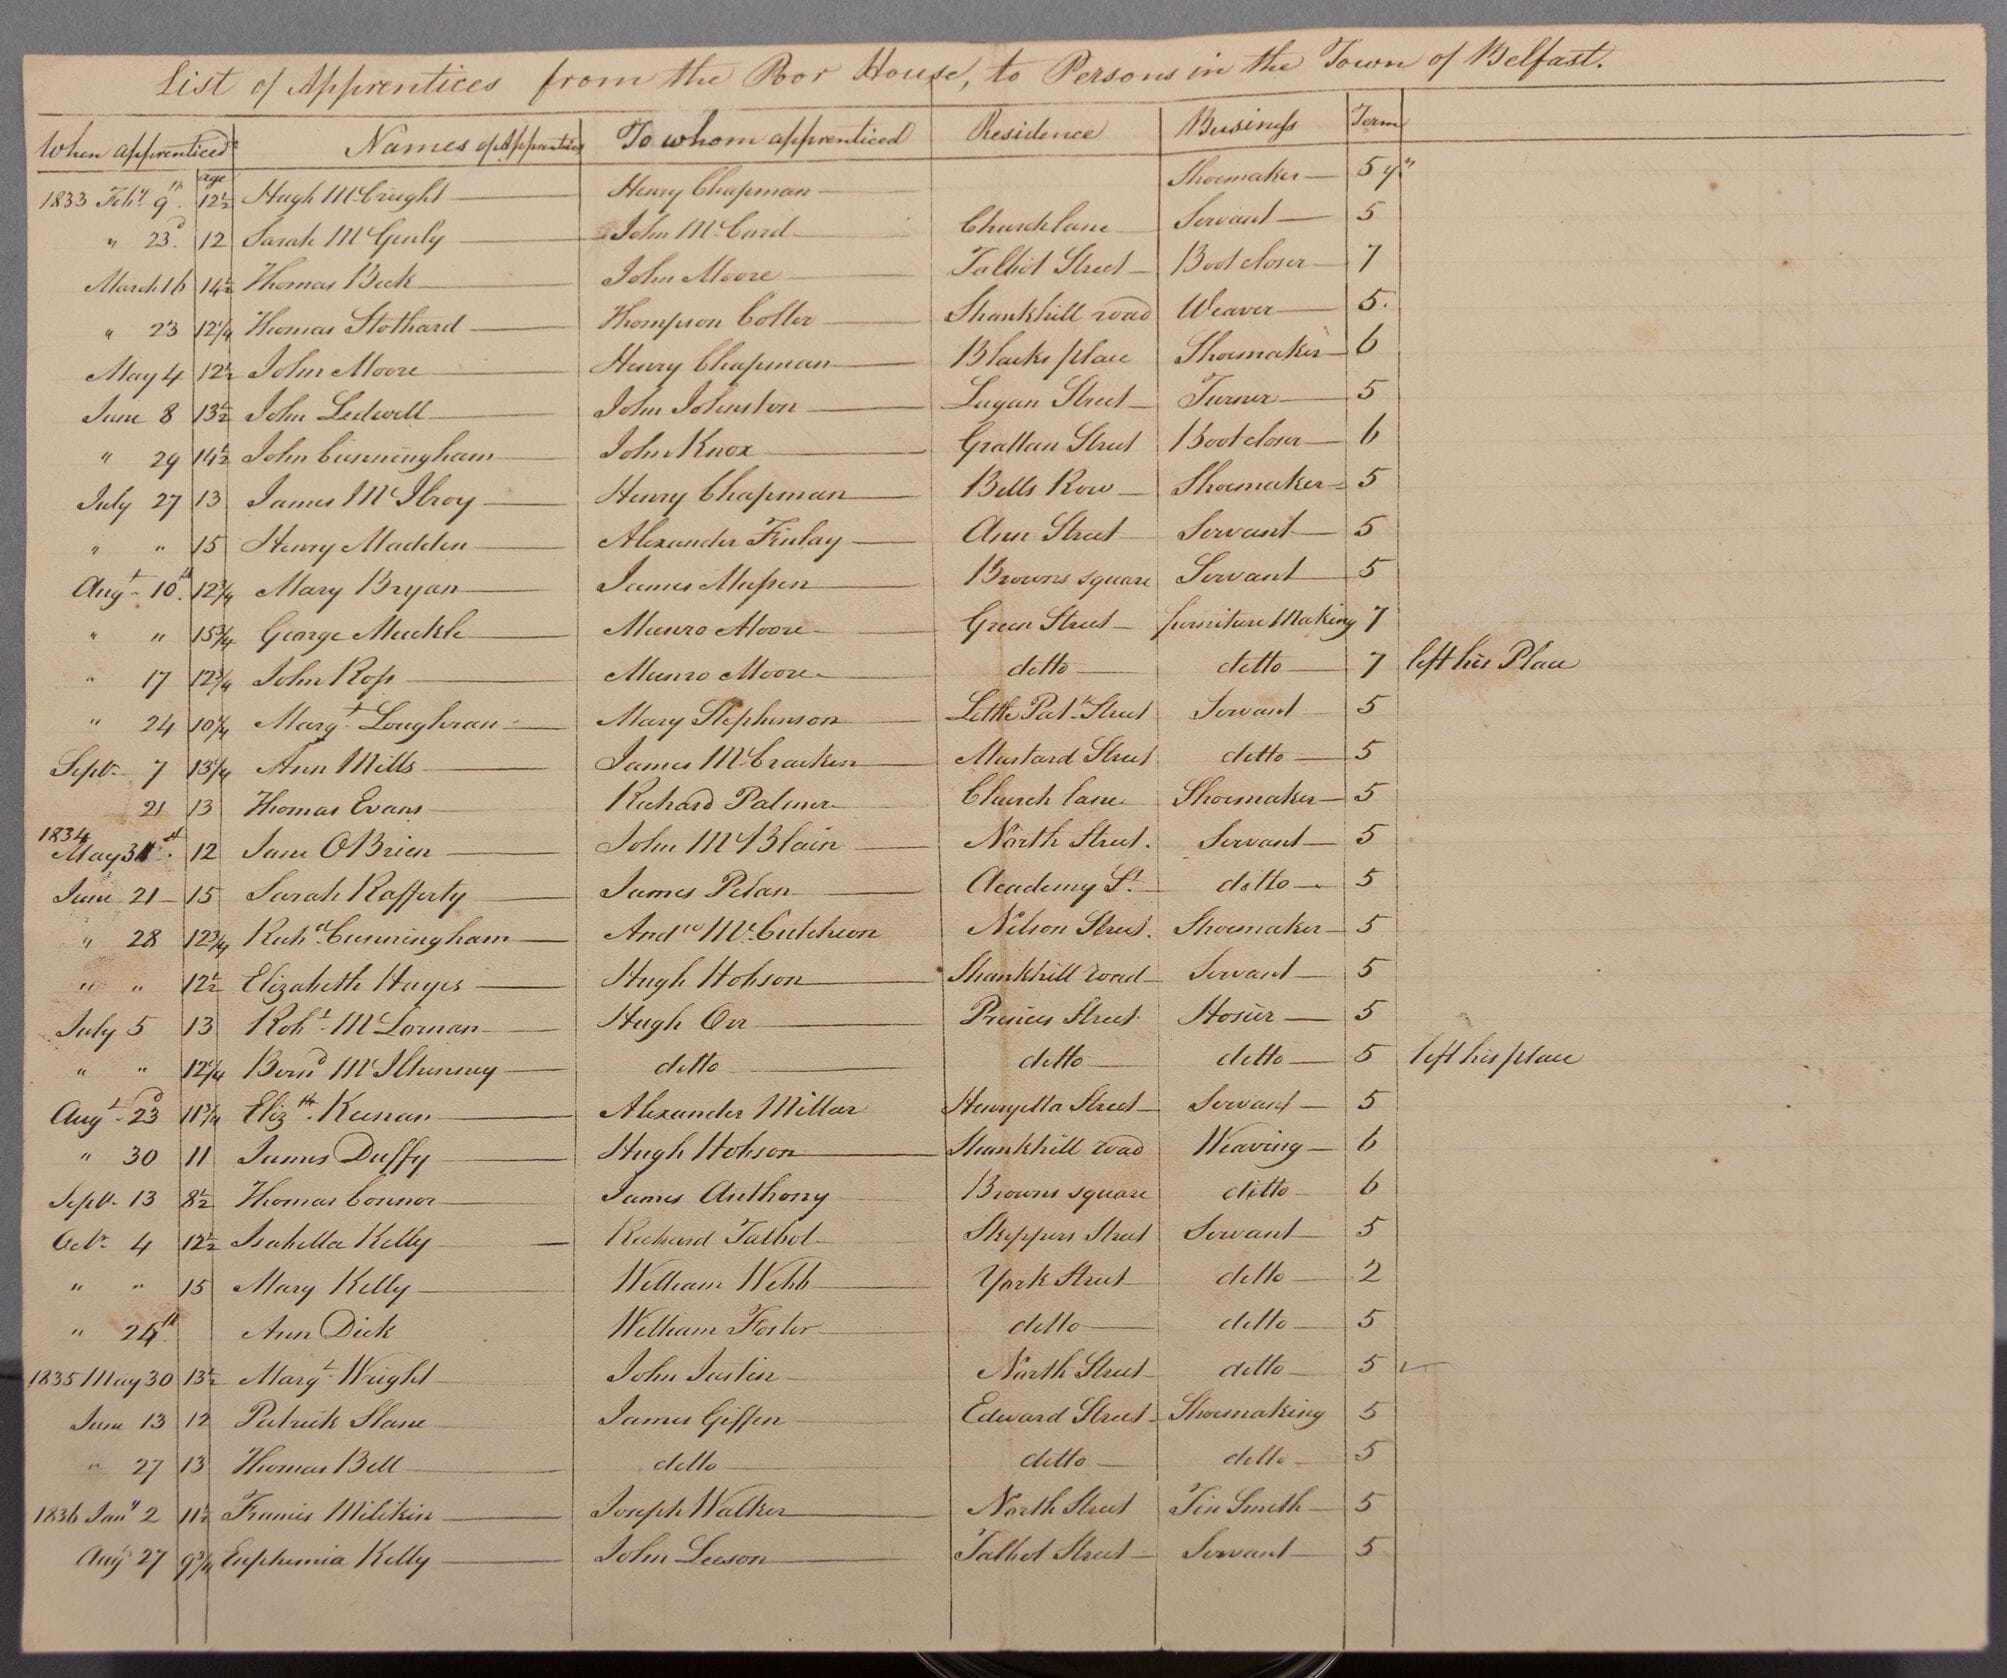 List of Apprentices from the Poor House, to Persons in the Town of Belfast.
When apprenticed age Names of Apprentices To whom apprenticed Residence Business Term
1833 Feby. 9th. 12½ Hugh McCught Henry Chapman Shoemaker 5 yrs
" 23d. 12 Sarah McGinly John McCord Church lane Servant 5
March 16 14½ Thomas Beck John Moore Talbot Street Boot closer 7
" 23 12¼ Thomas Stothard Thompson Coller Shankhill road Weaver 5.
May 4 12½ John Moore Henry Chapman Blacks place Shoemaker 6
June 8 13½ John Ledwell John Johnston Lagan Street Turner 5
" 29 14½ John Cunningham John Knox Grattan Street Boot closer 6
July 27 13 James McIlroy Henry Chapman Bells Row Shoemaker 5
" " 15 Henry Madden Alexander Finlay Ann Street Servant 5
Augt. 10th. 12¾ Mary Bryan James Mussen Browns square Servant 5
" " 15¾ George Muckle Munro Moore Green Street furniture Making 7
" 17 12¾ John Ross Munro Moore ditto ditto 7 left his Place
" 24 10¼ Margt. Loughran Mary Stephenson Little Patk. Street Servant 5
Septr. 7 13¼ Ann Mills James McCracken Mustard Street ditto 5
21 13 Thomas Evans Richard Palmer Church lane Shoemaker 5
1834
May 31st. 12 Jane OBrien John McBlain North Street. Servant 5
June 21 15 Sarah Rafferty James Pelan Academy St. ditto 5
" 28 12¾ Richd. Cunningham Andw McCutcheon Nelson Street. Shoemaker 5
" " 12½ Elizabeth Hayes Hugh Hobson Shankhill road Servant 5
July 5 13 Robt. McLornan Hugh Orr Princes Street Hosier 5
" " 12¼ Bernd McIlhenney ditto ditto ditto 5 left his place
Augt. 23d 11¾ Elizth. Keenan Alexander Millar Henryetta Street Servant 5
" 30 11 James Duffy Hugh Hobson Shankhill road Weaving 6
Septr. 13 8½ Thomas Connor James Anthony Browns square ditto 6
Octr. 4 12½ Isabella Kelly Richard Talbot Skippers Street Servant 5
" " 15 Mary Kelly William Webb York Street ditto 2
" 25th. Ann Dick William Foster ditto ditto 5
1835 May 30 13½ Margt. Wright John Justin North Street ditto 5
June 13 12 Patrick Slane James Giffen Edward Street Shoemaking 5
" 27 13 Thomas Bell ditto ditto ditto 5
1836 Jany 2 11½ Francis Milikin Joseph Walker North Street Tin Smith 5
Augt 27 9¾ Euphemia Kelly John Leeson Talbot Street Servant 5